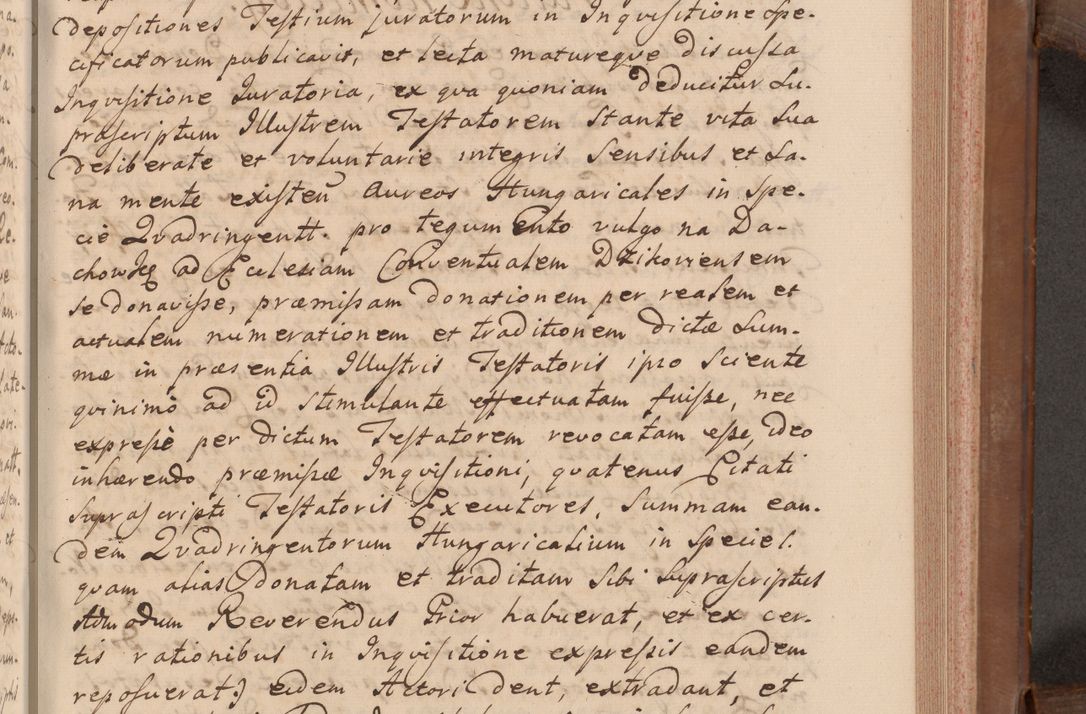 depositiones Testium juratorum in Inquisitione Spe-
cificatorum publicavit, et lecta matureqve discussa
Inqvisitione Juratoria, ex qva quoniam deducitur Su-
præscriptum Illustrem Testatorem Stante vita Sua
deliberate et voluntarie integris Sensibus et Sa-
na mente existen Aureos Hungaricales in Spe-
cie Qvadringentt. pro tegumento vulgo na Da-
chowkę ad Ecclesiam Conventualem Dzikoviensem
se donavisse, præmissam donationem per realem et
actualem numerationem et traditionem dictæ Sum-
mæ in præsentia Illustris Testatoris ipso Sciente
qvinimò ad id Stimulante effectuatam fuisse, nec
expressè per dictum Testatorem revocatam esse, ideo
inhærendo præmissæ Inqvisitioni, qvatenus Citati
Suprascripti Testatoris Executores, Summam ean-
dem Qvadringentorum Hungaricalium in Specie (.
qvam alias Donatam et traditam Sibi Suprascriptus
Admodum Reverendus Prior habuerat, et ex cer-
tis rationibus in Inqvisitione expressis eandem
reposuerat:) eidem Actori dent, extradant, et